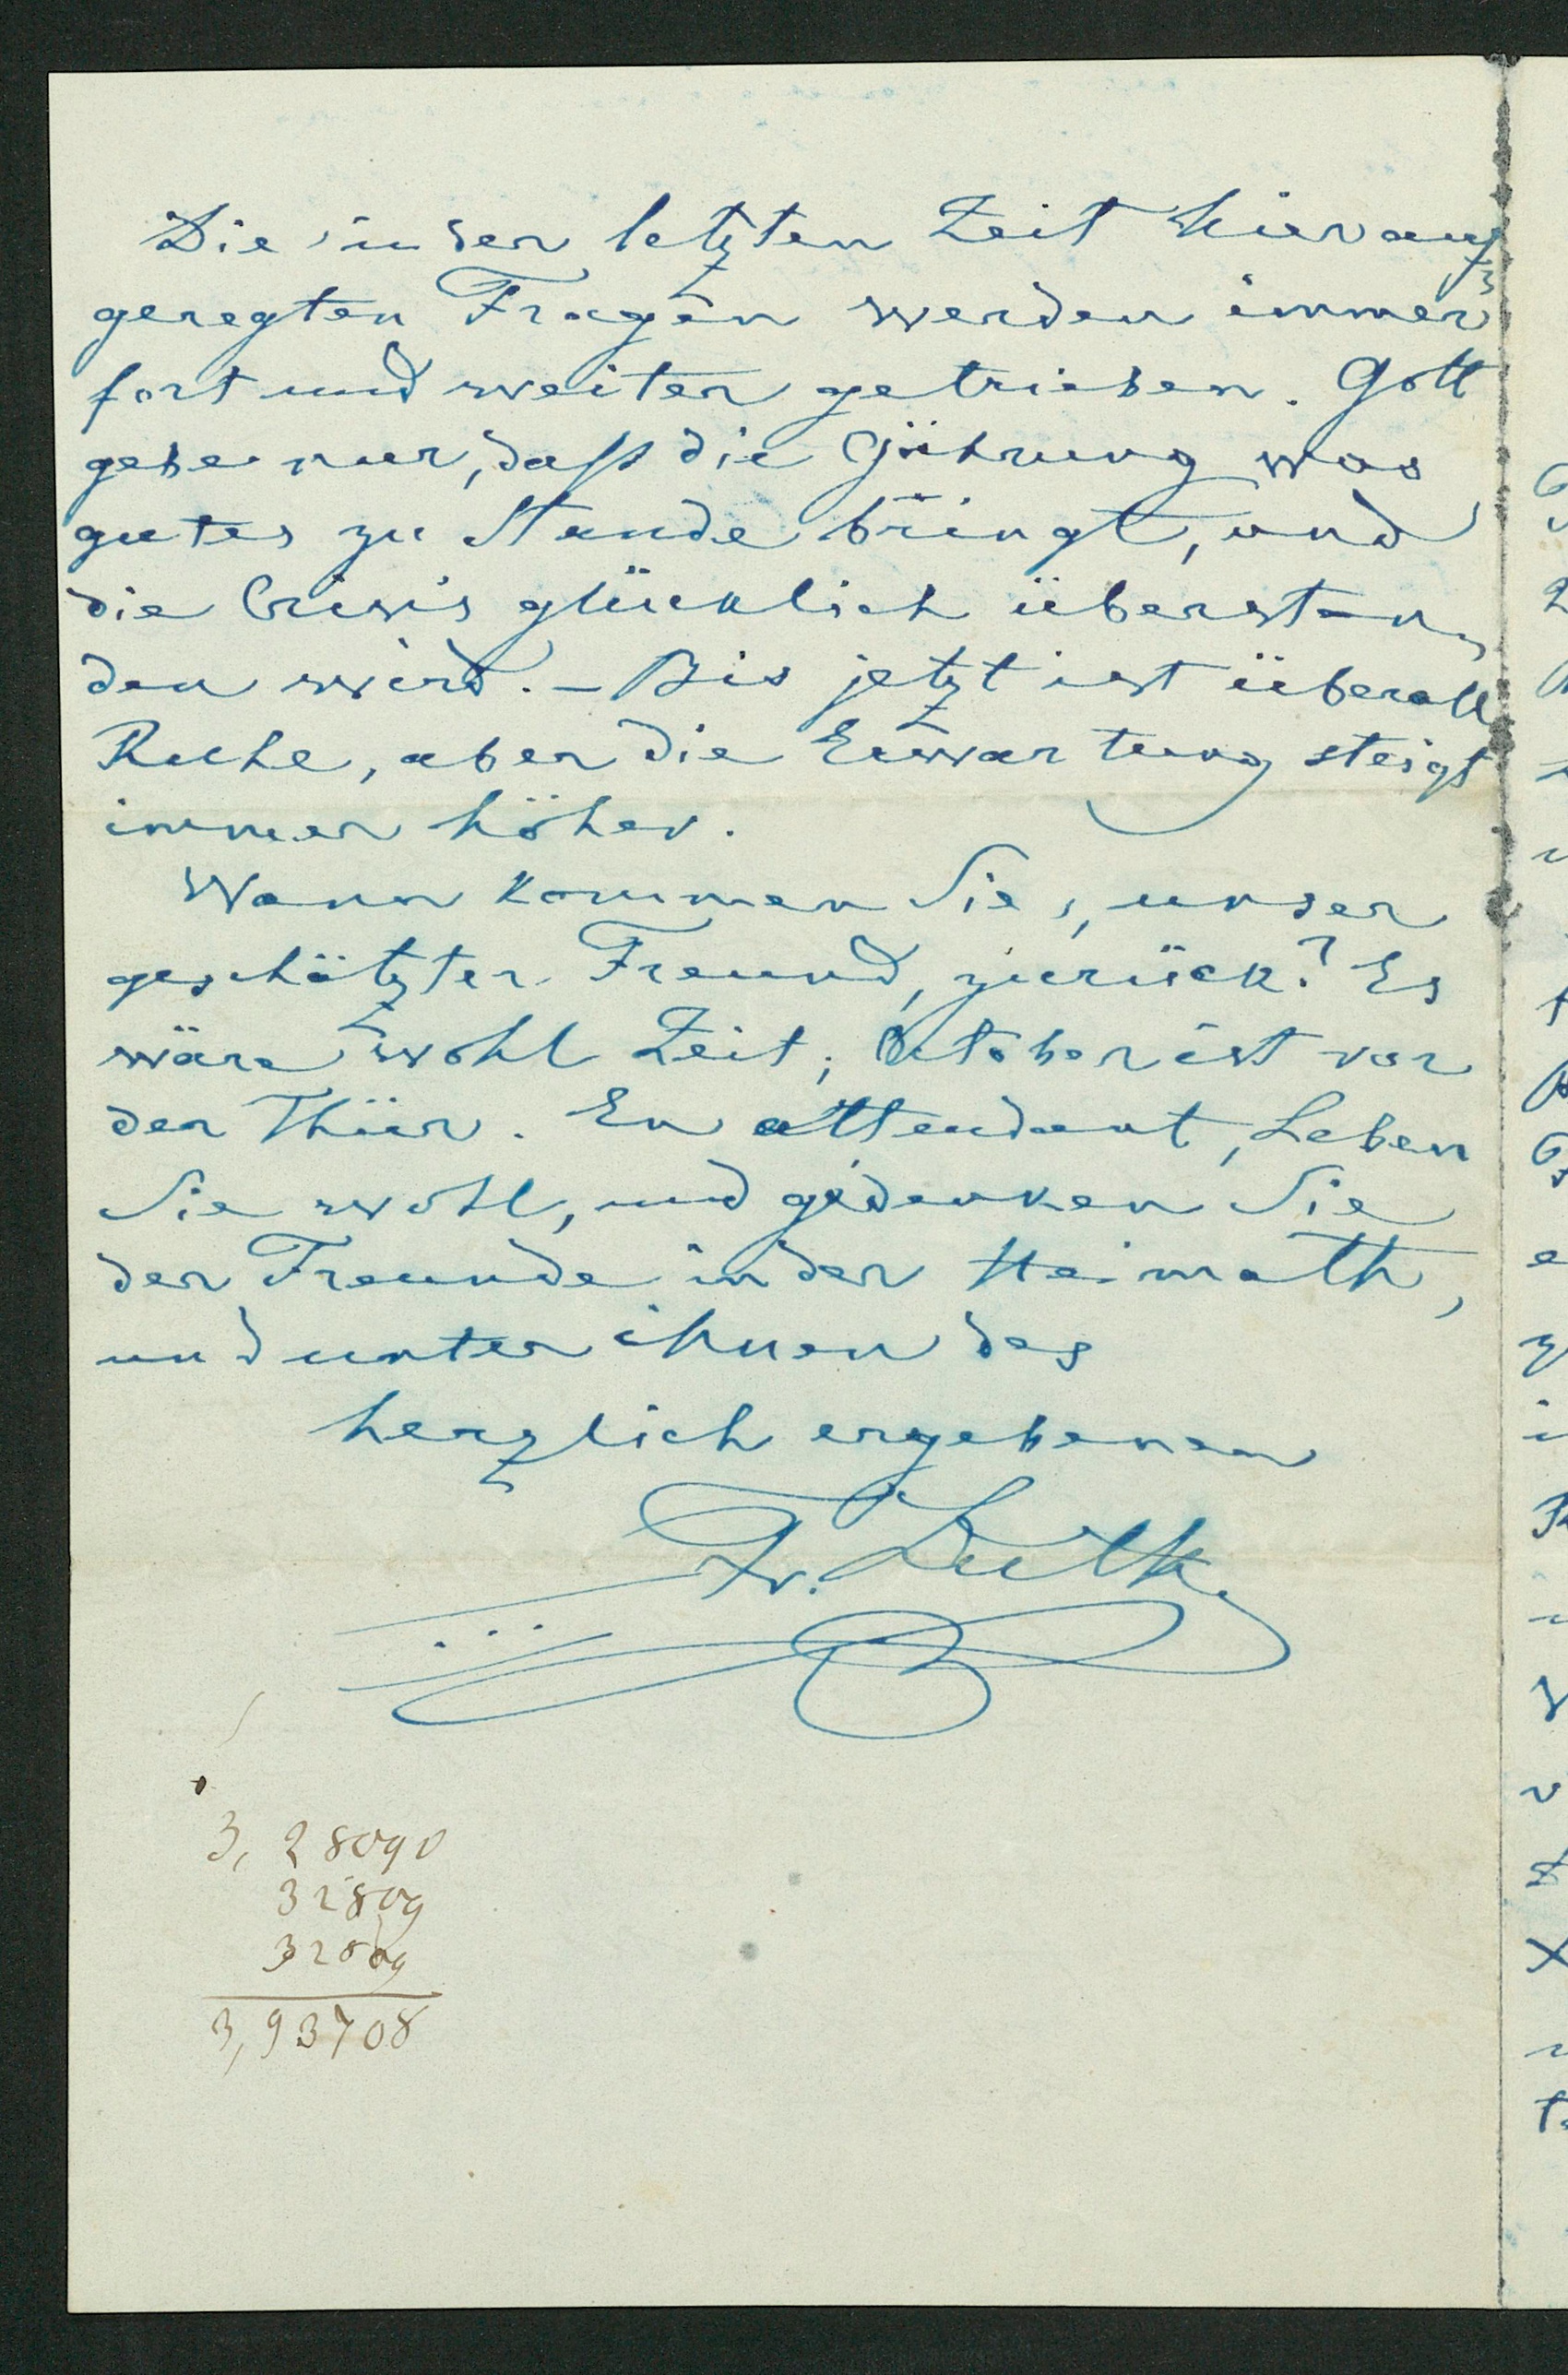 Die in der letzten Zeit hier auf
geregten Fragen werden immer
fort und weiter getrieben. Gott
gebe nur, daß die Gährung was
gutes zu Stande bringt, und
die Crisis glücklich überstan-
den wird. – Bis jetzt ist überall
Ruhe, aber die Erwartung steigt
immer höher.
Wann kommen Sie, unser
geschätzter Freund, zurück? Es
wäre wohl Zeit; October ist vor
der Thür. En attendant, Leben
Sie wohl, und gedenken Sie
der Freunde in der Heimath,
und unter ihnen des
herzlich ergebenen
Fr. Lütke
3,28090
32809
32809
3,93708